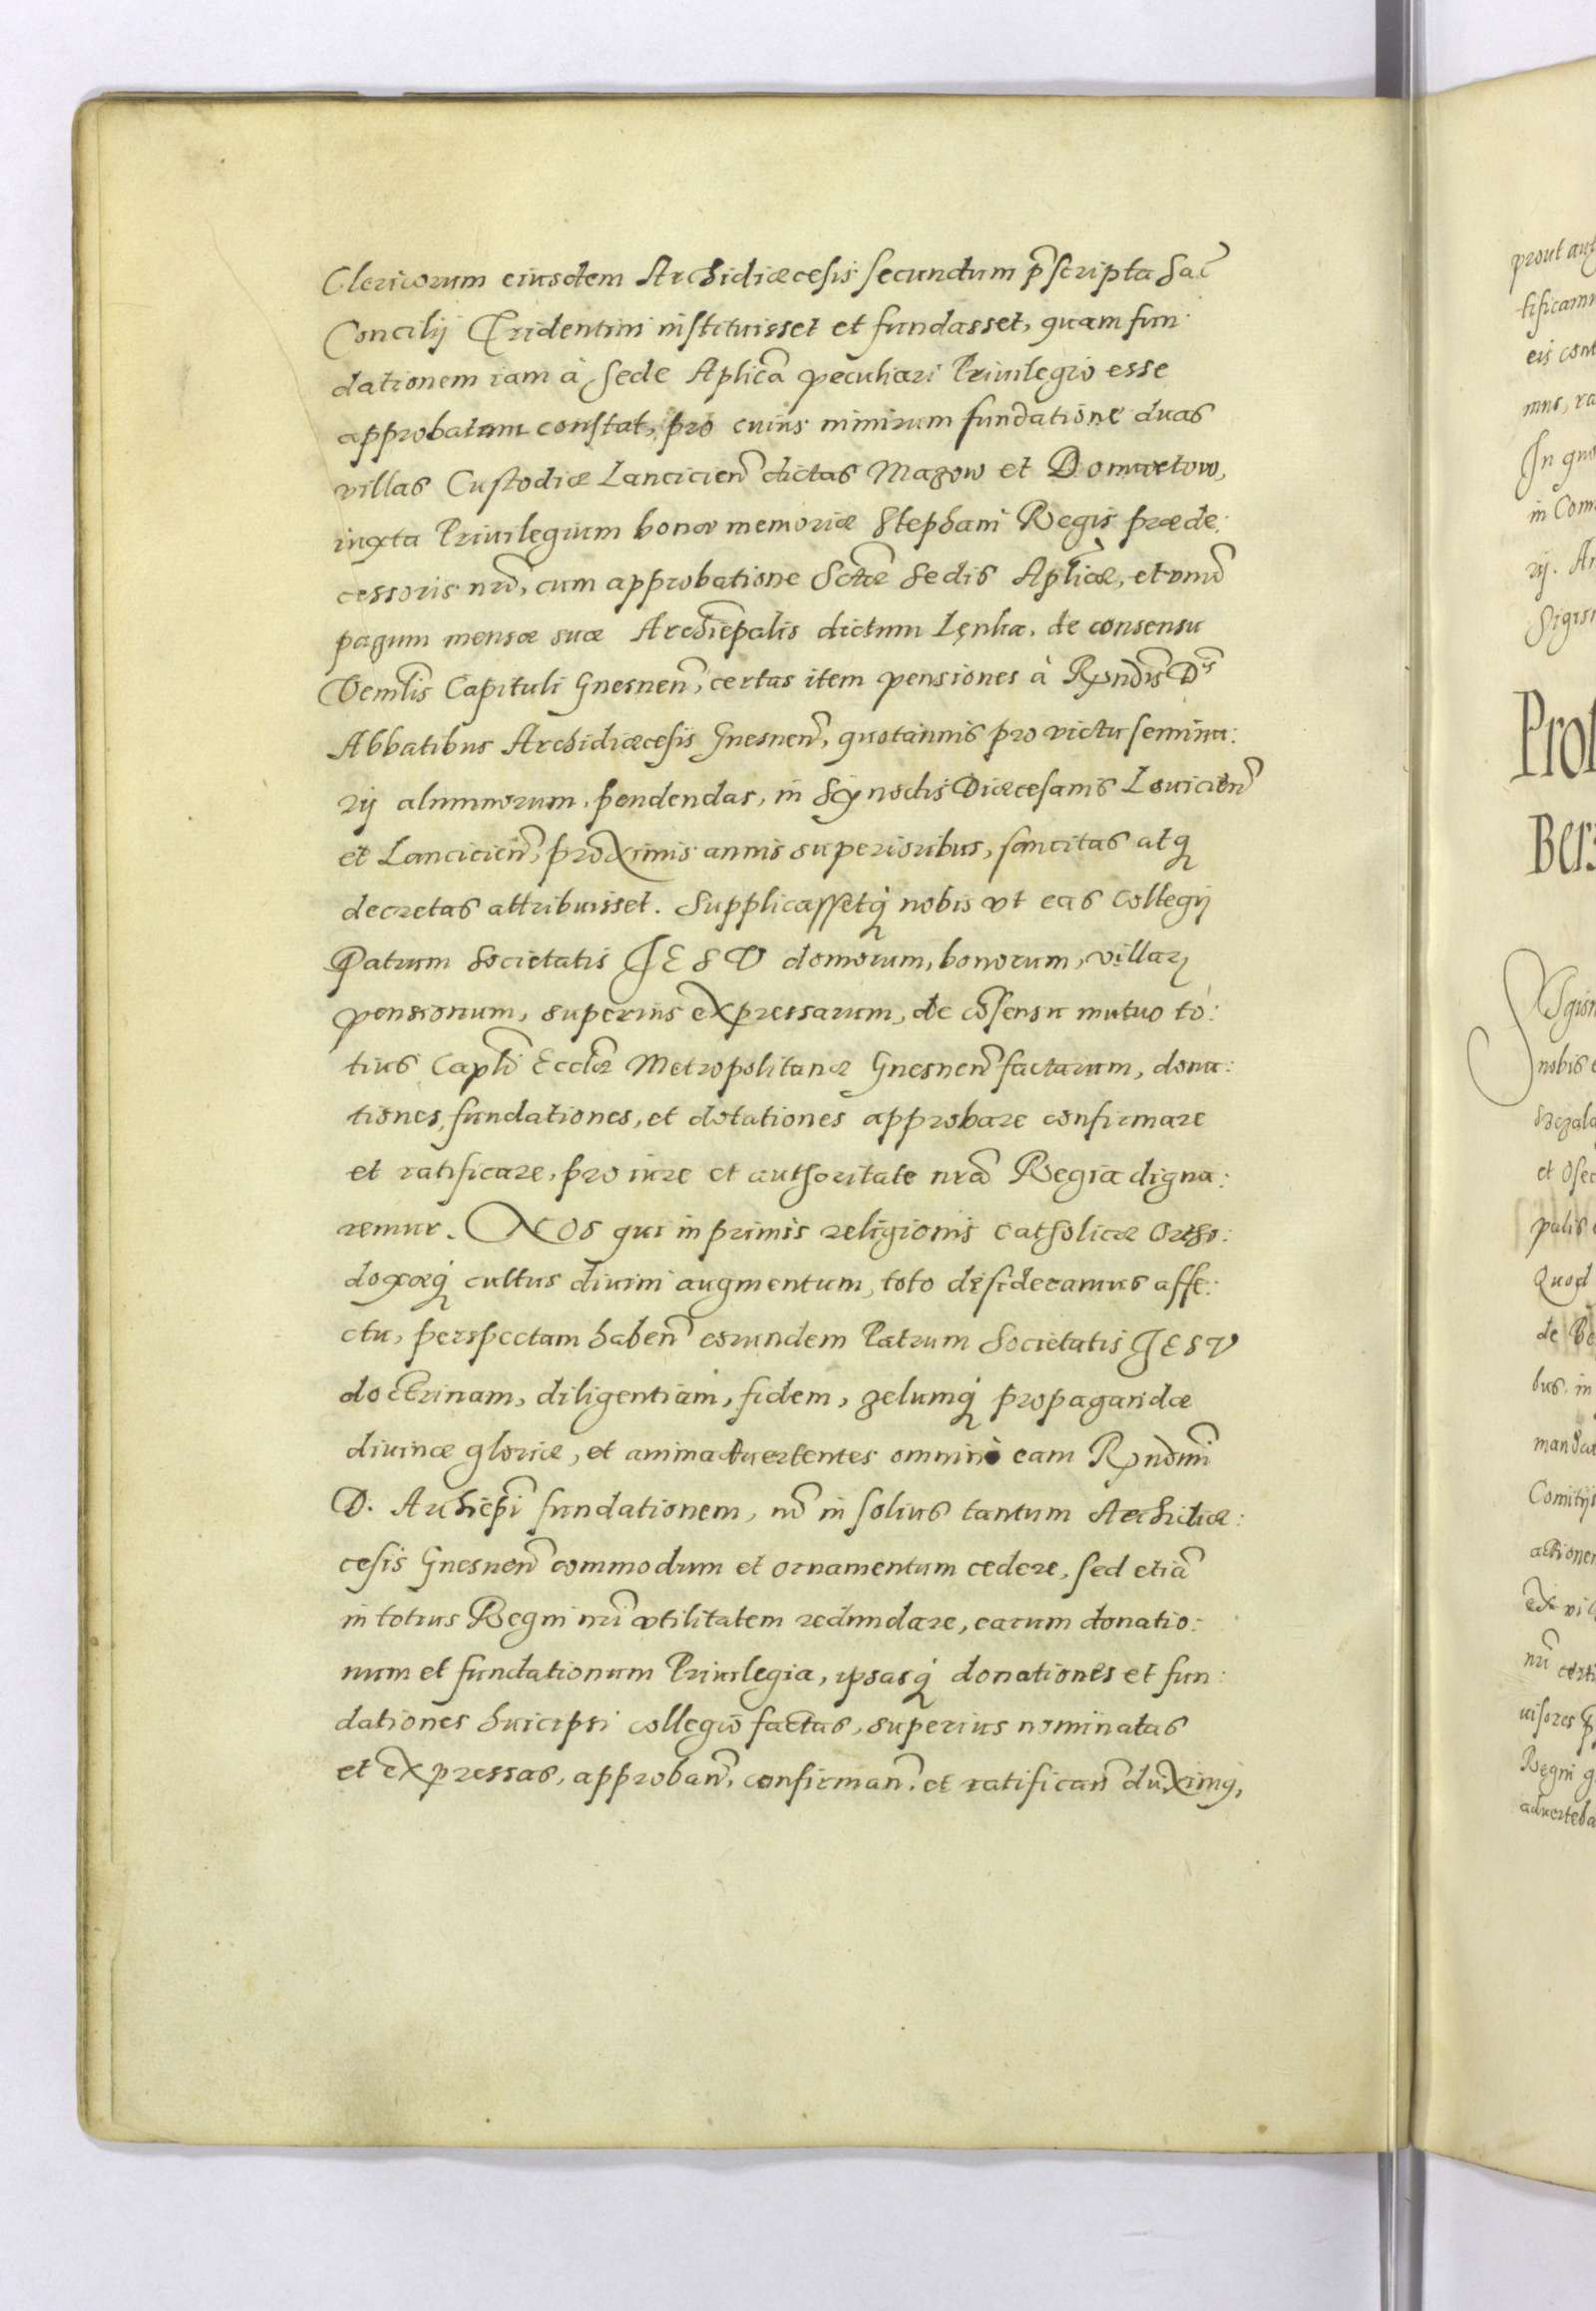 Clericorum eiusdem Archidiæcesis secundum p̄scripta Sac̄
Concilij Tridentini instituisset et fundasset, quam fun:
dationem iam à Sede Aplicā peculiari Priuilegio esse
approbatam constat, pro cuius nimirum fundatione duas
villas Custodiæ Lancicien̄ dictas Mazow et Domi
iuxta Priuilegium bonæ memoriæ Stephani Regis præde:
cessoris nrī, cum approbatione Sctǣ Sedis Aplicǣ, et vnū
pagum mensæ suæ Archiēpalis dictum Lęnka, de consensu
Venlis̄ Capituli Gnesnen̄, certas item pensiones à Rndis̄ Dīs
Abbatibus Archidiæcesis Gnesnen̄, quotannis pro victu semina:
rij alumnorum, pendendas, in Synodis Diæcesanis Louicien̄
et Lancicien̄, proximis annis superioribus, sancitas atq
decretas attribuisset. Supplicassetq nobis vt eas Collegij
Patrum Societatis IESV domorum, bonorum, villarꝝ
pensionum, superius expressarum, de cōsensu mutuo to:
tius Caplī Ecclǣ Metropolitanæ Gnesnen̄ factarum, dona:
tiones, fundationes, et dotationes approbare confirmare
et ratificare, pro iure et authoritate nrā Regia digna:
remur. NOS qui in primis religionis Catholicæ Ortho:
doxæq cultus diuini augmentum, toto desideramus affe:
ctu, perspectam haben̄ eorundem Patrum Societatis IESV
doctrinam, diligentiam, fidem, zelumq propagandæ
diuinæ gloriæ, et animaduertentes omninò eam Rndmī
D. Archiepī fundationem, nō in solius tantum Archidiæ:
cesis Gnesnen̄ commodum et ornamentum cedere, sed etiā
in totius Regni nrī vtilitatem redundare, earum donatio:
num et fundationum Priuilegia, ipsasq donationes et fun:
dationes huic ipsi collegio factas, superius nominatas
et expressas, approban̄, confirman̄, et ratifican̄ duximꝰ,
prout
tificam
eis cont
In quo
in Com
Sigis
Prot
nobis
et
palis
Quod
de
bus in
manda
Comitijs
actione
ex vi
nrī
uisores
Regni
aduerteba